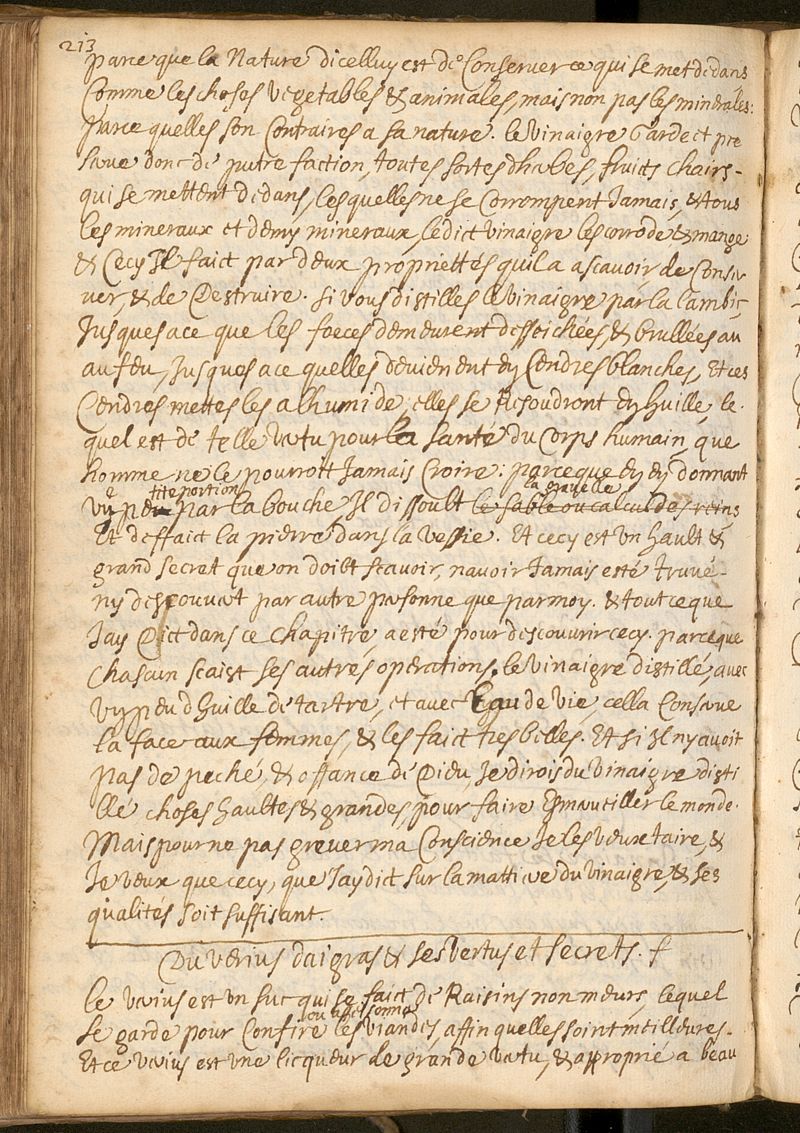 213
parce que la Nature dicelluy est de Conserver ce qui se met dedans
Comme les choses vegetables & animales, mais non pas les minerales:
parce quelles son Contraires a sa nature. le vinaigre Garde et pre
serve donc de putrefaction, toutes sortes dherbes, fruits chairs-
qui se mettent dedans, lesquelles ne se Corrompent Jamais, & tous
les mineraux et demy mineraux, ledict vinaigre les corrode & mange
& Cecy Il faict par deux propriettés quil a ascavoir, de Conser
ver, & de Destruire. si vous distilles le vinaigre par la lambic
Jusques a ce que les foeces demeurent desseichées, & brullées au
au feu, Jusques a ce quelles devienent en Cendres blanches, Et ces
Cendres mettes les a lhumide, elles se resoudront en huille, le-
quel est de telle vertu pour la santé du Corps humain, que
homme ne le pourroit Jamais Croire: parce que en en donnant
tite portion la gravelle
un peu par la bouche Il dissoult le sable ou calcul des reins
Et deffaict la pierre dans la vessie. Et cecy est un hault &
grand secret que on doibt scavoir, navoir Jamais esté truvé-
ny descouvert par autre personne que par moy. & tout ce que
Jay Dict dans ce Chapitre, a esté pour descouvrir cecy. parce que
chascun scaist ses autres operations. le vinaigre distillé, avec
un peu dhuille de tartre, et avec Eau de vie, cella Conserve
la face aux femmes, & les faict tres belles. Et si Il ny avoit
pas de peché, & offance de Dieu, Je dirois du vinaigre disti
llé choses haultes & grandes, pour faire Esmerveiller le monde.
Mais pour ne pas grever ma Conscience Je les veux taire, &
Je veux que cecy, que Jay dict sur la mattiere du vinaigre, & ses
qualités soit suffisant.
Du verius daigras & ses vertus et secrets.
le verius est un suc qui se faict de Raisins non meurs, lequel
ou assesonner
se garde pour Confire les viandes, affin quelles soint meilleures-
Et ce verius est une licqueur de grande vertu, & approprié a beau